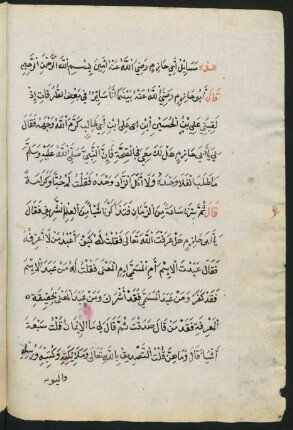 هذه مسائل أبي حازم رضي الله عنه آمين بسم الله الرحمن الرحيم
قال أبو حازم رضي الله عنه بينما أنا سائر في بعض الطرقات إذ
لقيني علي بن الحسين ابن علي بن أبي طالب كرم الله وجهه فقال
لي يا أبي حازم هل لك معي في الصحبة فإن النبي صلى الله عليه وسلم
ما طلب الفلا وحده ولا أكل الزاد وحده فقلت له حبا وكرامة
قال ثم سرنا ساعة من الزمان فتذاكرنا شيأ من العلم الشريف فقال
يا أبي حازم هل عرفت الله تعالى فقلت له كيف أعبد من لا أعرفه
فقال عبدت الاسم أم المسمى أم المعنى فقلت له من عبد الاسم
فقد كفر ومن عبد المسمى فقد أشرك ومن عبد المعنى بحقيقة
المعرفة فقد من قال صدقت ثم قال لي ما الإيمان قلت سبعة
أشيا قال وما هي قلت التصديق بالله تعالى وملائكته وكتبه ورسله
واليوم